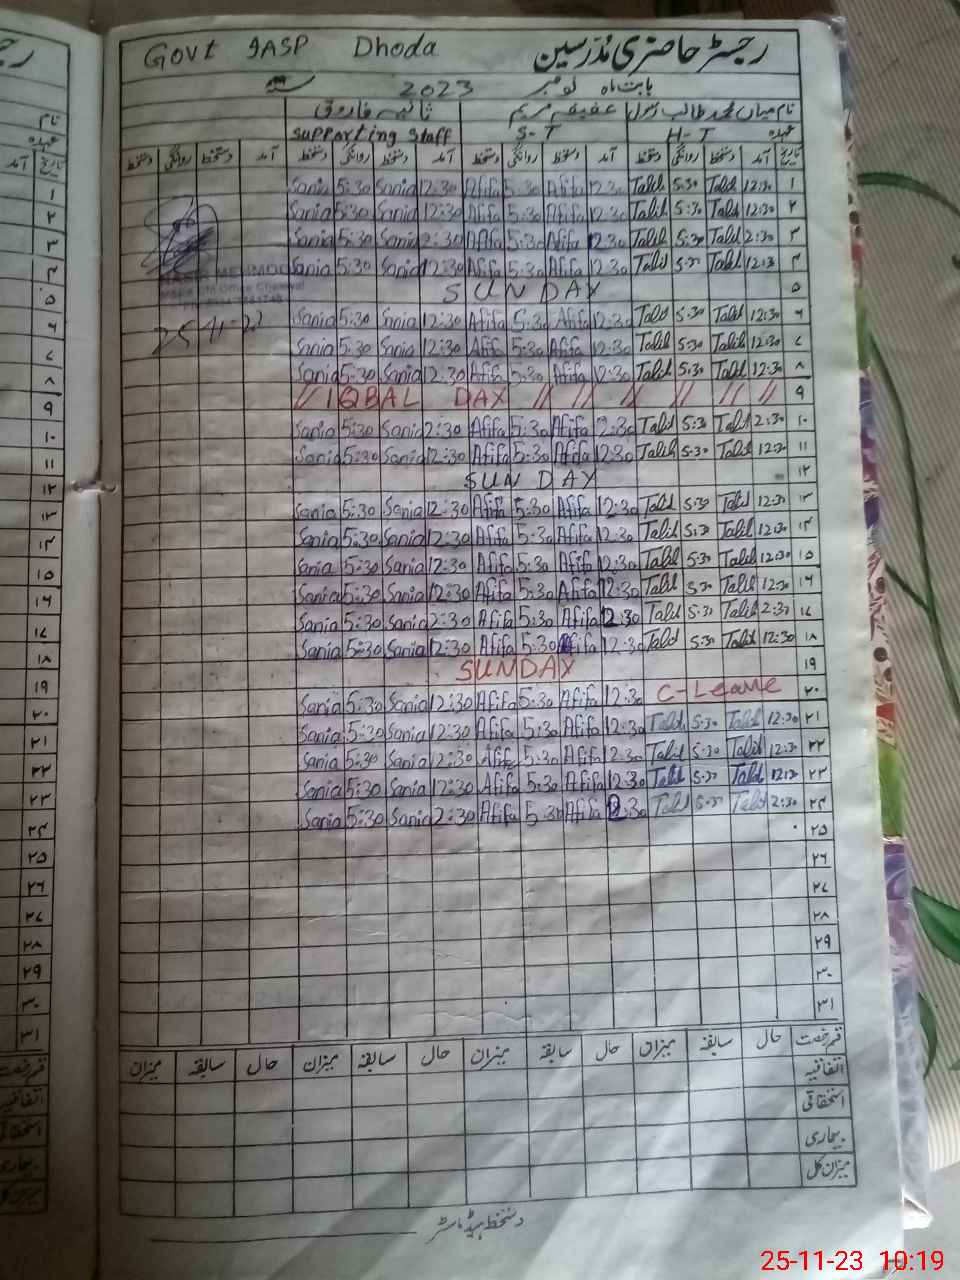 Govt IASP Dhoda رجسٹر حاضری مدرسین
بابت ماہ نومبر 2023
نام میاں محمد طالب رسول عفیفہ مریم ثانیہ فاروق
عہدہ H-T S-T Supporting Staff
تاریخ آمد دستخط روانگی دستخط آمد دستخط روانگی دستخط آمد دستخط روانگی دستخط آمد دستخط روانگی دستخط
۱ 12:30 Talib 5:30 Talib 12:30 Afifa 5:30 Afifa 12:30 Sania 5:30 Sania
۲ 12:30 Talib 5:30 Talib 12:30 Afifa 5:30 Afifa 12:30 Sania 5:30 Sania
۳ 12:30 Talib 5:30 Talib 12:30 Afifa 5:30 Afifa 12:30 Sania 5:30 Sania
۴ 12:30 Talib 5:30 Talib 12:30 Afifa 5:30 Afifa 12:30 Sania 5:30 Sania
۵ SUNDAY
۶ 12:30 Talib 5:30 Talib 12:30 Afifa 5:30 Afifa 12:30 Sania 5:30 Sania
۷ 12:30 Talib 5:30 Talib 12:30 Afifa 5:30 Afifa 12:30 Sania 5:30 Sania
۸ 12:30 Talib 5:30 Talib 12:30 Afifa 5:30 Afifa 12:30 Sania 5:30 Sania
۹ // IQBAL DAY // // // // // //
۱۰ 12:30 Talib 5:30 Talib 12:30 Afifa 5:30 Afifa 12:30 Sania 5:30 Sania
۱۱ 12:30 Talib 5:30 Talib 12:30 Afifa 5:30 Afifa 12:30 Sania 5:30 Sania
۱۲ SUNDAY
۱۳ 12:30 Talib 5:30 Talib 12:30 Afifa 5:30 Afifa 12:30 Sania 5:30 Sania
۱۴ 12:30 Talib 5:30 Talib 12:30 Afifa 5:30 Afifa 12:30 Sania 5:30 Sania
۱۵ 12:30 Talib 5:30 Talib 12:30 Afifa 5:30 Afifa 12:30 Sania 5:30 Sania
۱۶ 12:30 Talib 5:30 Talib 12:30 Afifa 5:30 Afifa 12:30 Sania 5:30 Sania
۱۷ 12:30 Talib 5:30 Talib 12:30 Afifa 5:30 Afifa 12:30 Sania 5:30 Sania
۱۸ 12:30 Talib 5:30 Talib 12:30 Afifa 5:30 Afifa 12:30 Sania 5:30 Sania
۱۹ SUNDAY
۲۰ C-Leave 12:30 Afifa 5:30 Afifa 12:30 Sania 5:30 Sania
۲۱ 12:30 Talib 5:30 Talib 12:30 Afifa 5:30 Afifa 12:30 Sania 5:30 Sania
۲۲ 12:30 Talib 5:30 Talib 12:30 Afifa 5:30 Afifa 12:30 Sania 5:30 Sania
۲۳ 12:30 Talib 5:30 Talib 12:30 Afifa 5:30 Afifa 12:30 Sania 5:30 Sania
۲۴ 12:30 Talib 5:30 Talib 12:30 Afifa 5:30 Afifa 12:30 Sania 5:30 Sania
۲۵
۲۶
۲۷
۲۸
۲۹
۳۰
۳۱
قسم رخصت حال سابقہ میزان حال سابقہ میزان حال سابقہ میزان حال سابقہ میزان
اتفاقیہ
استحقاقی
بیماری
میزان کل
دستخط ہیڈ ماسٹر
25-11-23 10:19